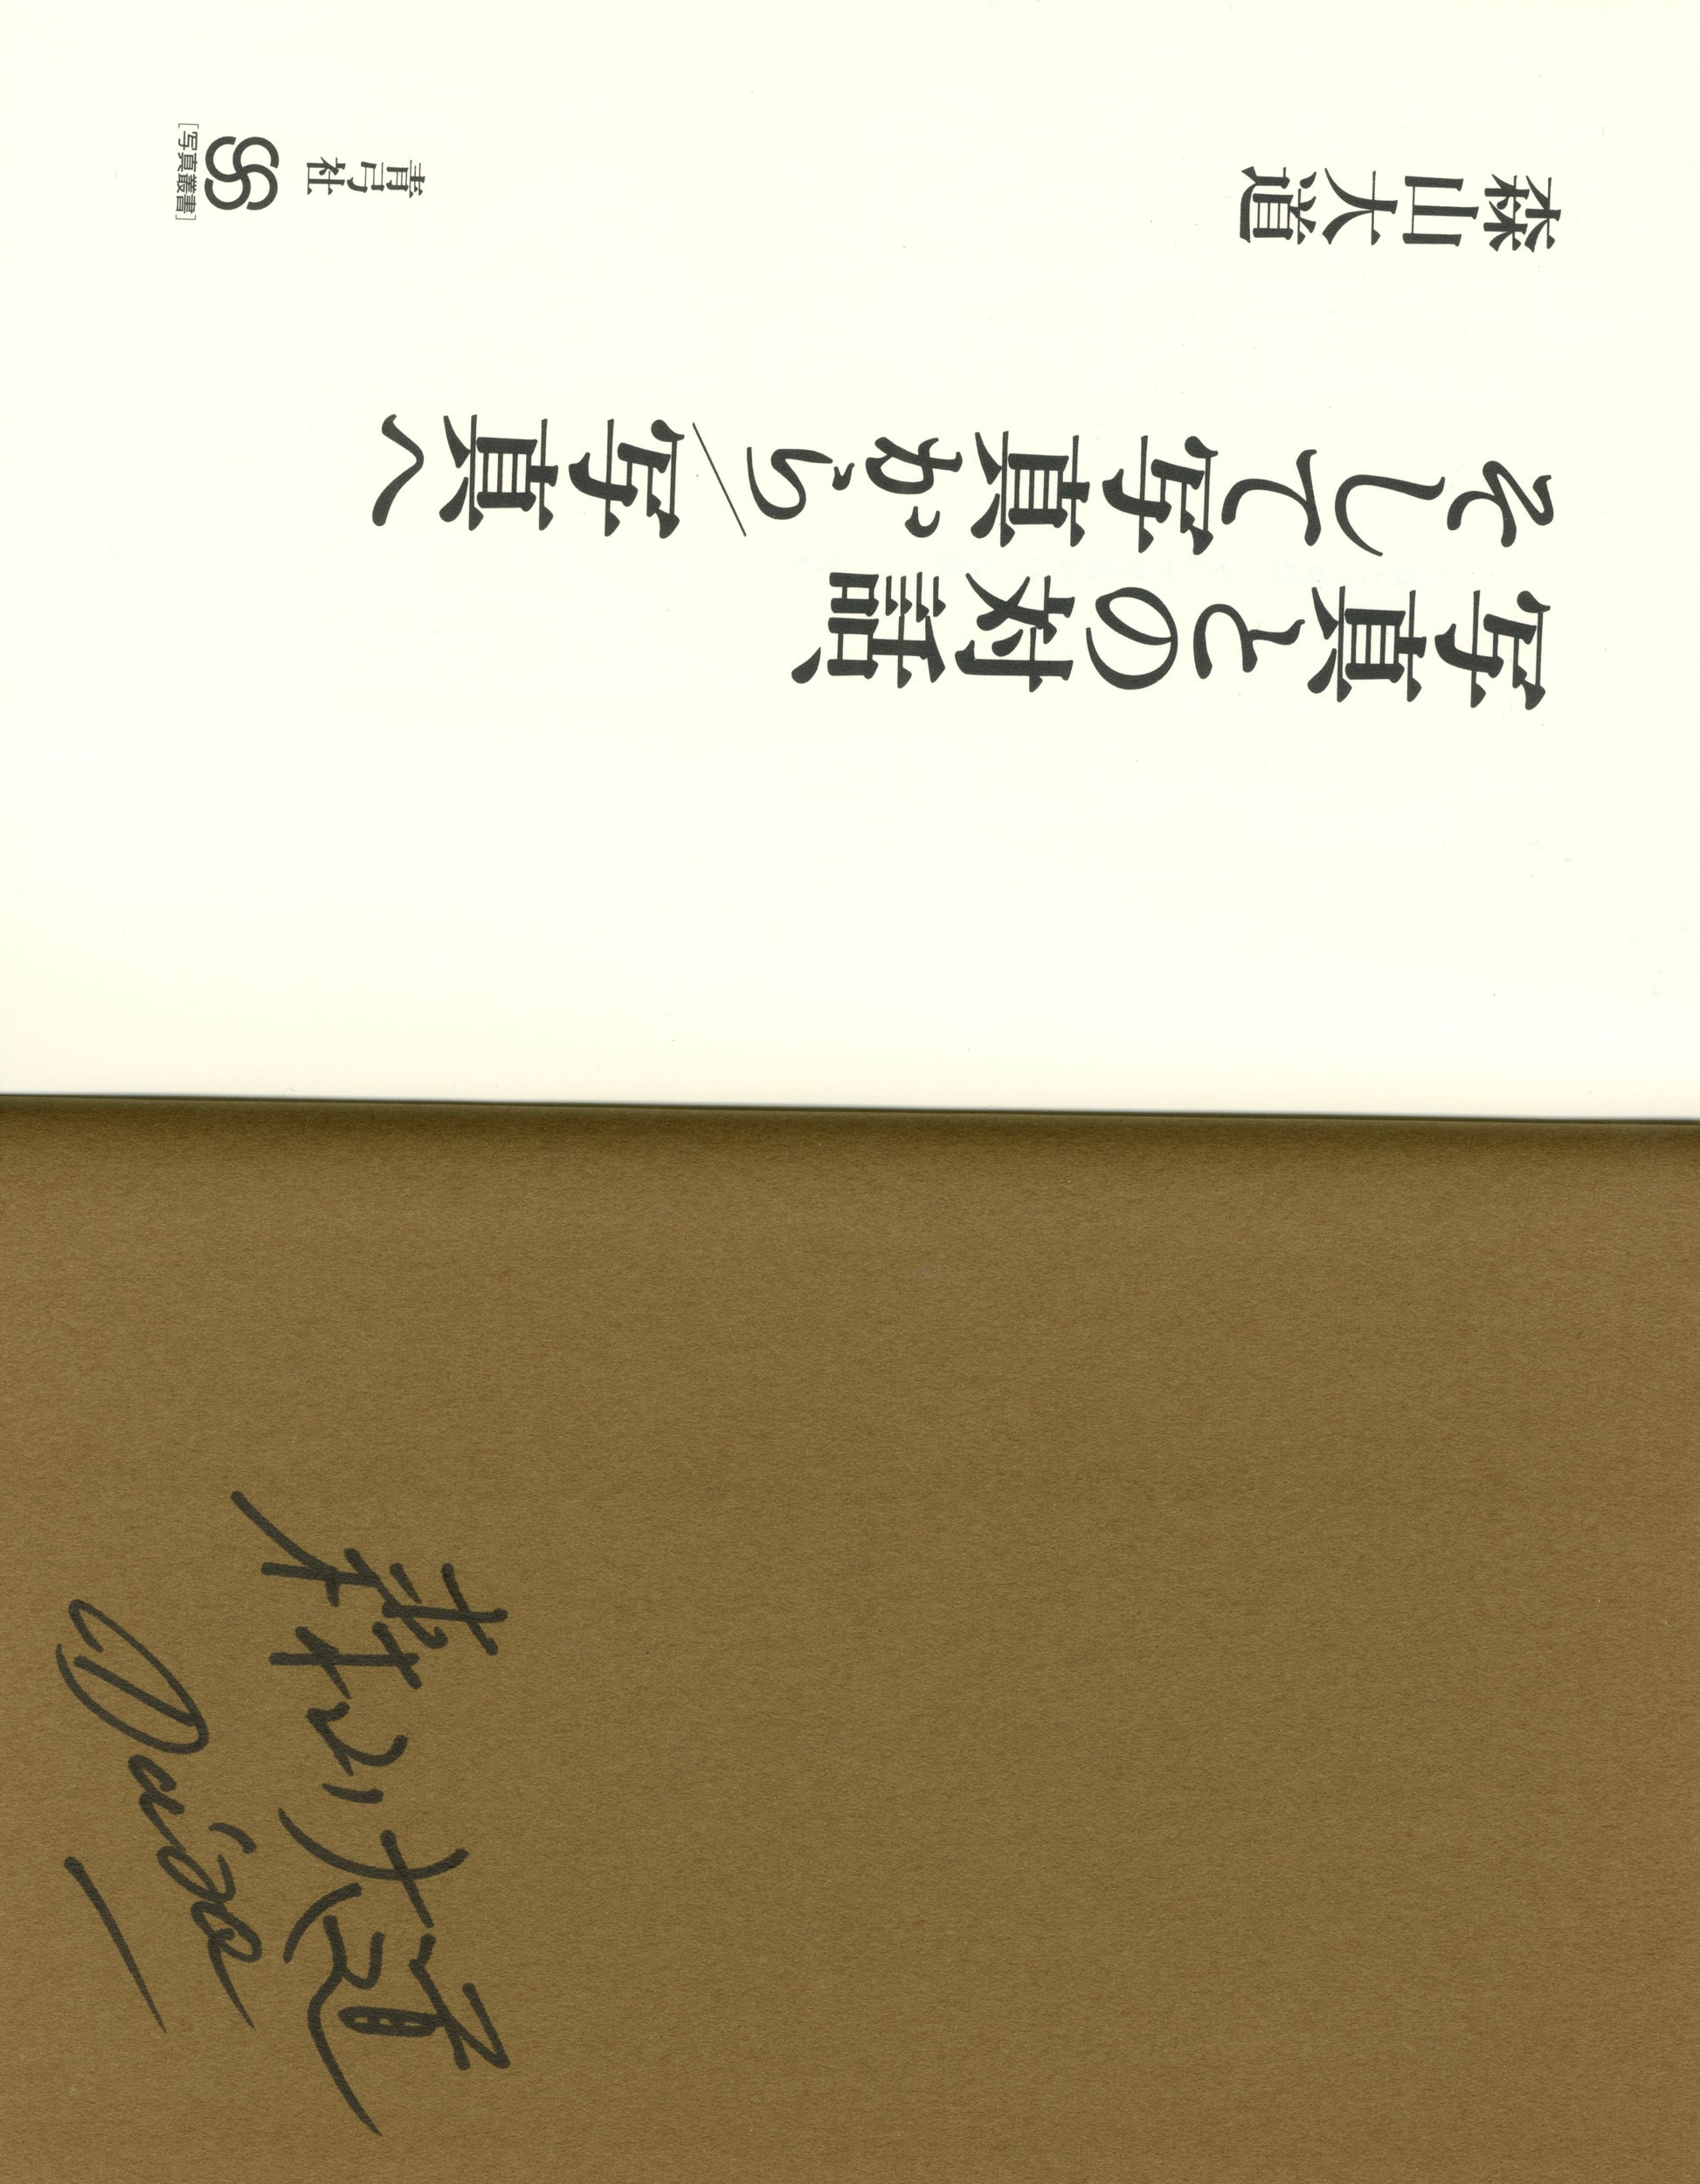 写真との対話、
そして写真から/写真へ
森山大道
青弓社
[写真叢書]
森山大道
Daido